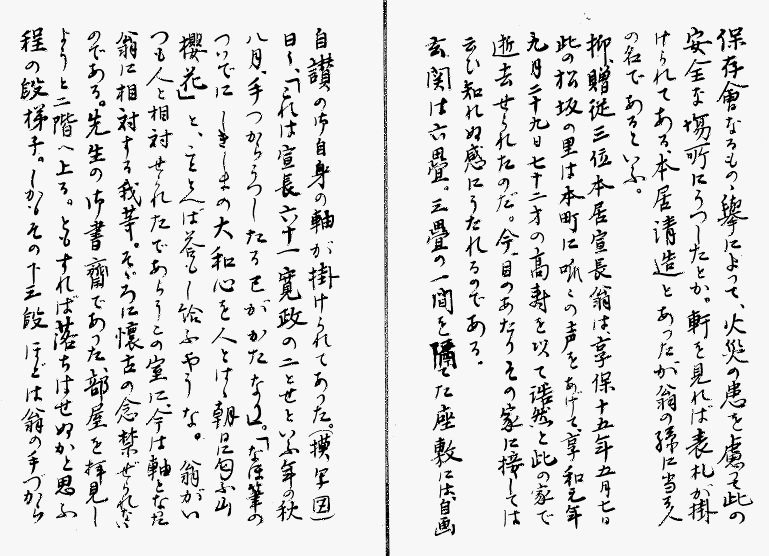 保存會なるものゝ擧によって、火災の患を慮って此の
安全な場所にうつしたとか。軒を見れば表札が掛
けられてある、本居清造とあったが翁の孫に当る人
の名であるといふ。
抑、贈従三位本居宣長翁は享保十五年五月七日
此の松坂の里は本町に呱々の声をあげて、享和元年
九月二十九日七十二才の高壽を以て浩然と此の家で
逝去せられたのだ。今、目のあたりその家に接しては
云ひ知れぬ感にうたれるのである。
玄関は六畳。三畳の一間を隔てた座敷には、自画
自讃の御自身の軸が掛けられてあった。(模写図)
曰く、「これは宣長六十一寛政の二とせといふ年の秋
八月、手つからうつしたるおのがかたなり」。「なほ筆の
ついでに しきしまの大和心を人とはゞ朝日に匂ふ山
櫻花」と、こととへば答もし給ふやうな。 翁がい
つも人と相対せられたであらうこの室に、今は軸となった
翁に相対する我輩。そゞろに懐古の念禁ぜられない
のである。先生の御書齋であった部屋を拝見し
ようと二階へ上る。ともすれば落ちはせぬかと思ふ
程の段梯子。しかもその下三段ほどは翁の手づから